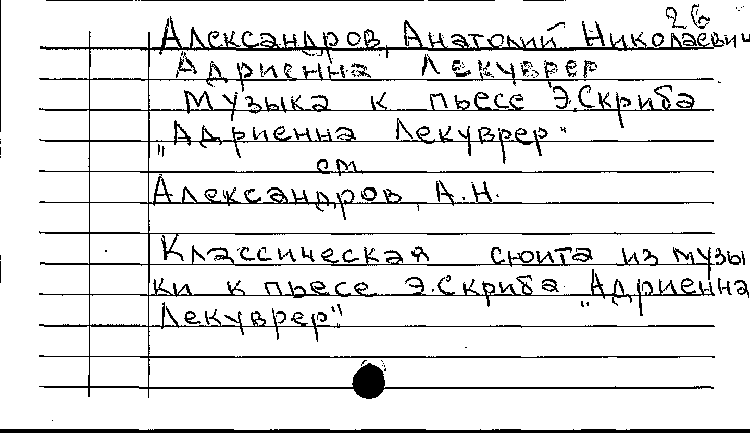 26
Александров, Анатолий Николаевич
Адриенна Лекуврер
Музыка к пьесе Э.Скриба
"Адриенна Лекуврер"
см
Александров, А.Н.
Классическая сюита из музы
ки к пьесе Э.Скриба "Адриенна
Лекуврер".